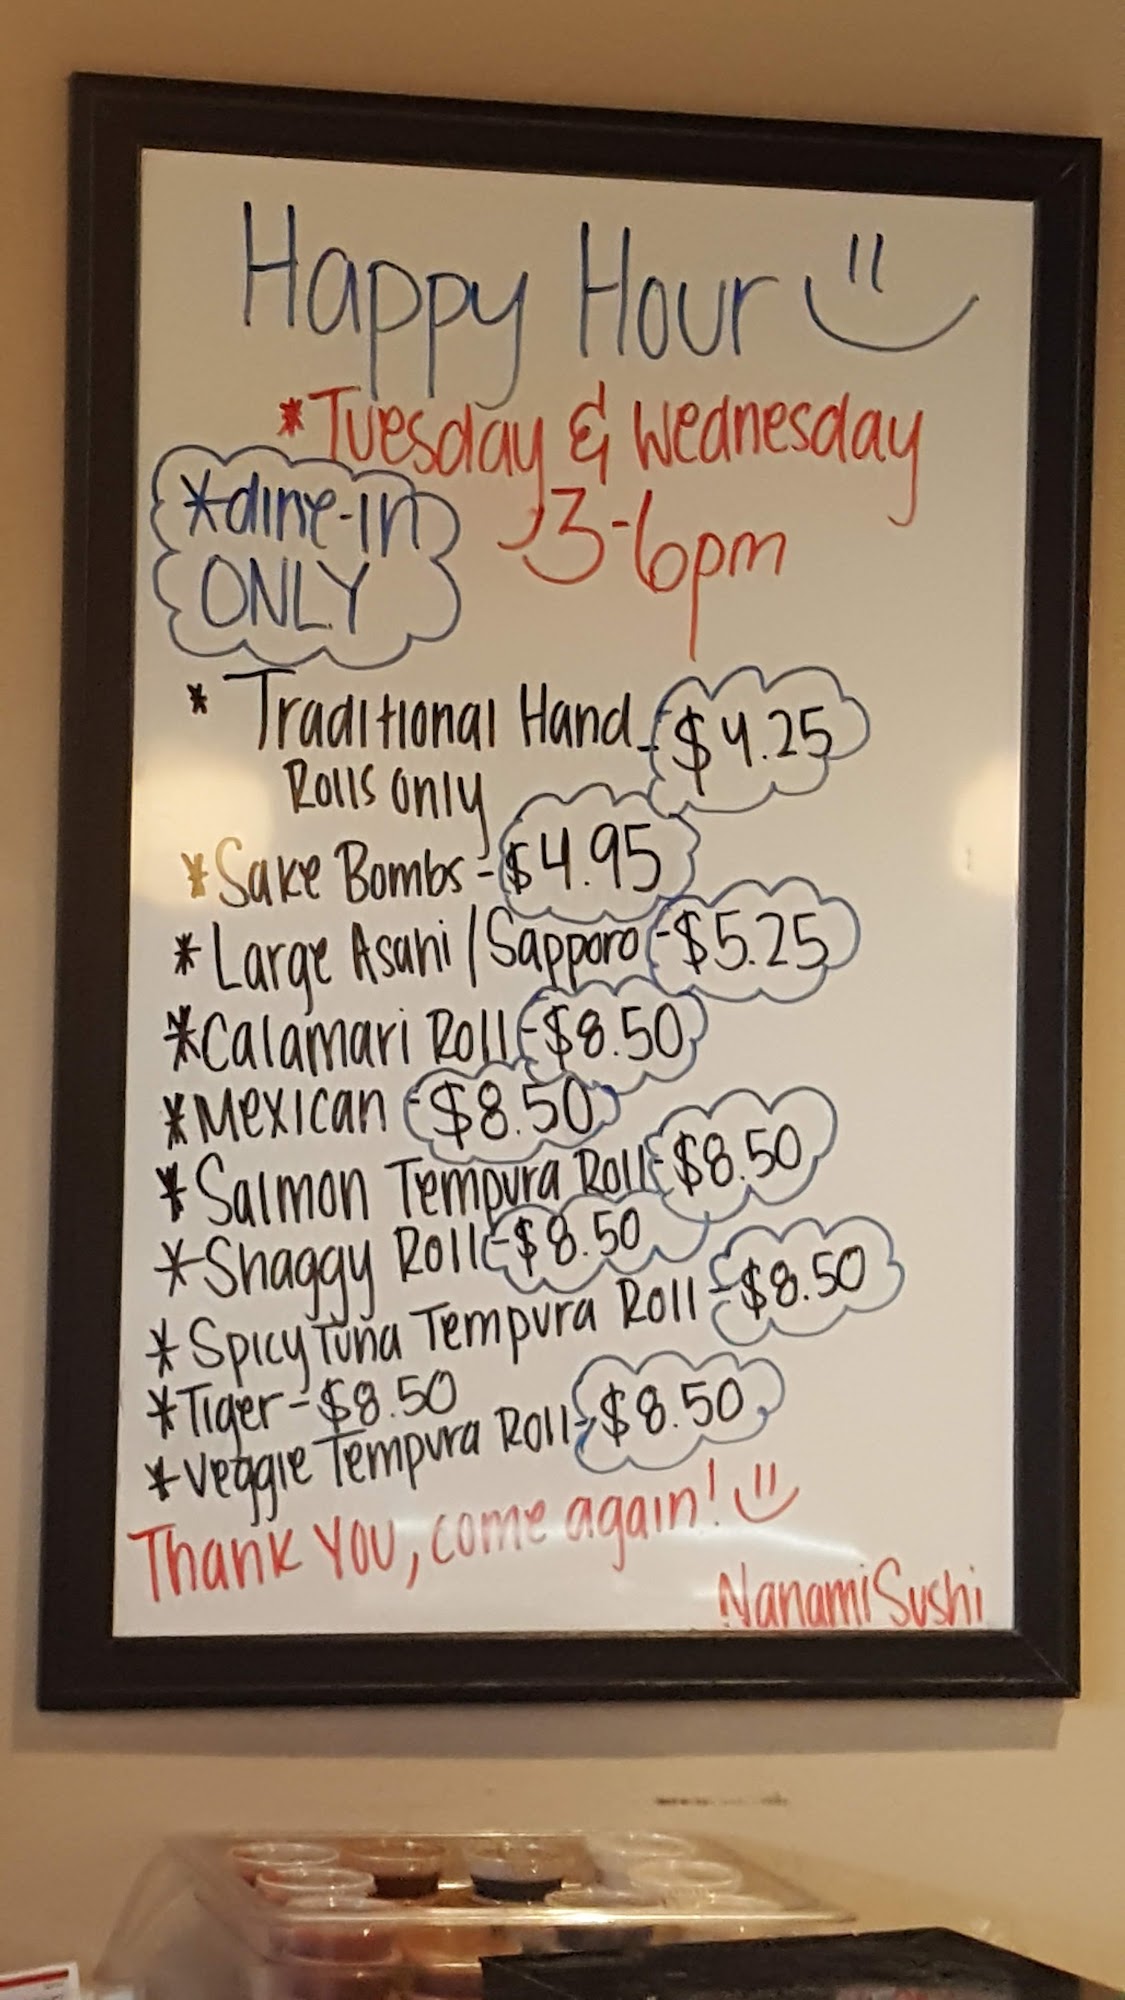 Happy Hour
*Tuesday & Wednesday
*dine-in
ONLY
3-6pm
* Traditional Hand - $4.25
Rolls only
*Sake Bombs - $4.95
*Large Asahi/Sapporo - $5.25
*Calamari Roll - $8.50
*Mexican - $8.50
*Salmon Tempura Roll - $8.50
*Shaggy Roll - $8.50
*Spicy Tuna Tempura Roll - $8.50
*Tiger - $8.50
*Veggie Tempura Roll - $8.50
Thank you, come again!
Nanami Sushi